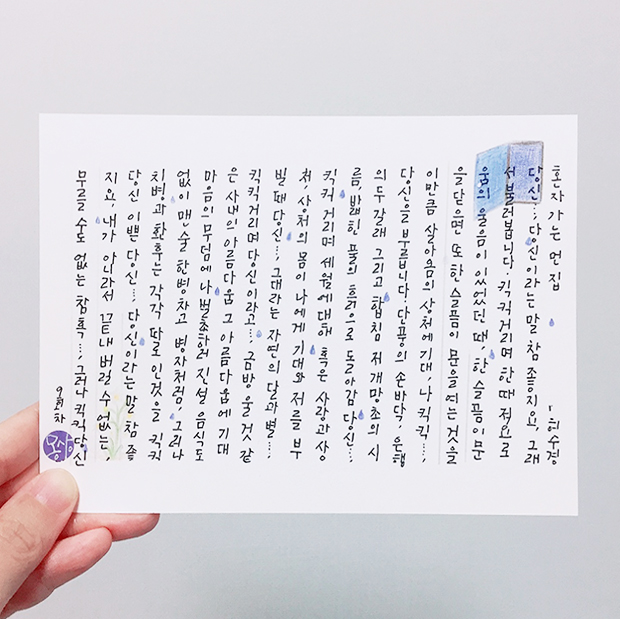 혼자 가는 먼 집 , 허수경
당신..., 당신이라는 말 참 좋지요, 그래
서 불러봅니다. 킥킥거리며 한때 적요로
움의 울음이 있었던 때, 한 슬픔이 문
을 닫으면 또 한 슬픔이 문을 여는 것을
이만큼 살아옴의 상처에 기대, 나 킥킥...,
당신을 부릅니다. 단풍의 손바닥, 은행
의 두 갈래 그리고 합침 저 개망초의 시
름, 밟힌 풀의 흙으로 돌아감 당신...,
킥킥 거리며 세월에 대해 혹은 사랑과 상
처, 상처의 몸이 나에게 기대와 저를 부
빌 때 당신..., 그대라는 자연의 달과 별...,
킥킥거리며 당신이라고..., 금방 울 것 같
은 사내의 아름다움 그 아름다움에 기대
마음의 무덤에 나 벌초하러 진설 음식도
없이 맨 술 한 병 차고 병자처럼, 그러나
치병과 환후는 각각 따로인 것을 킥킥
당신 이쁜 당신..., 당신이라는 말 참 좋
지요, 내가 아니라서 끝내 버릴 수 없는,
무를 수도 없는 참혹..., 그러나 킥킥 당신